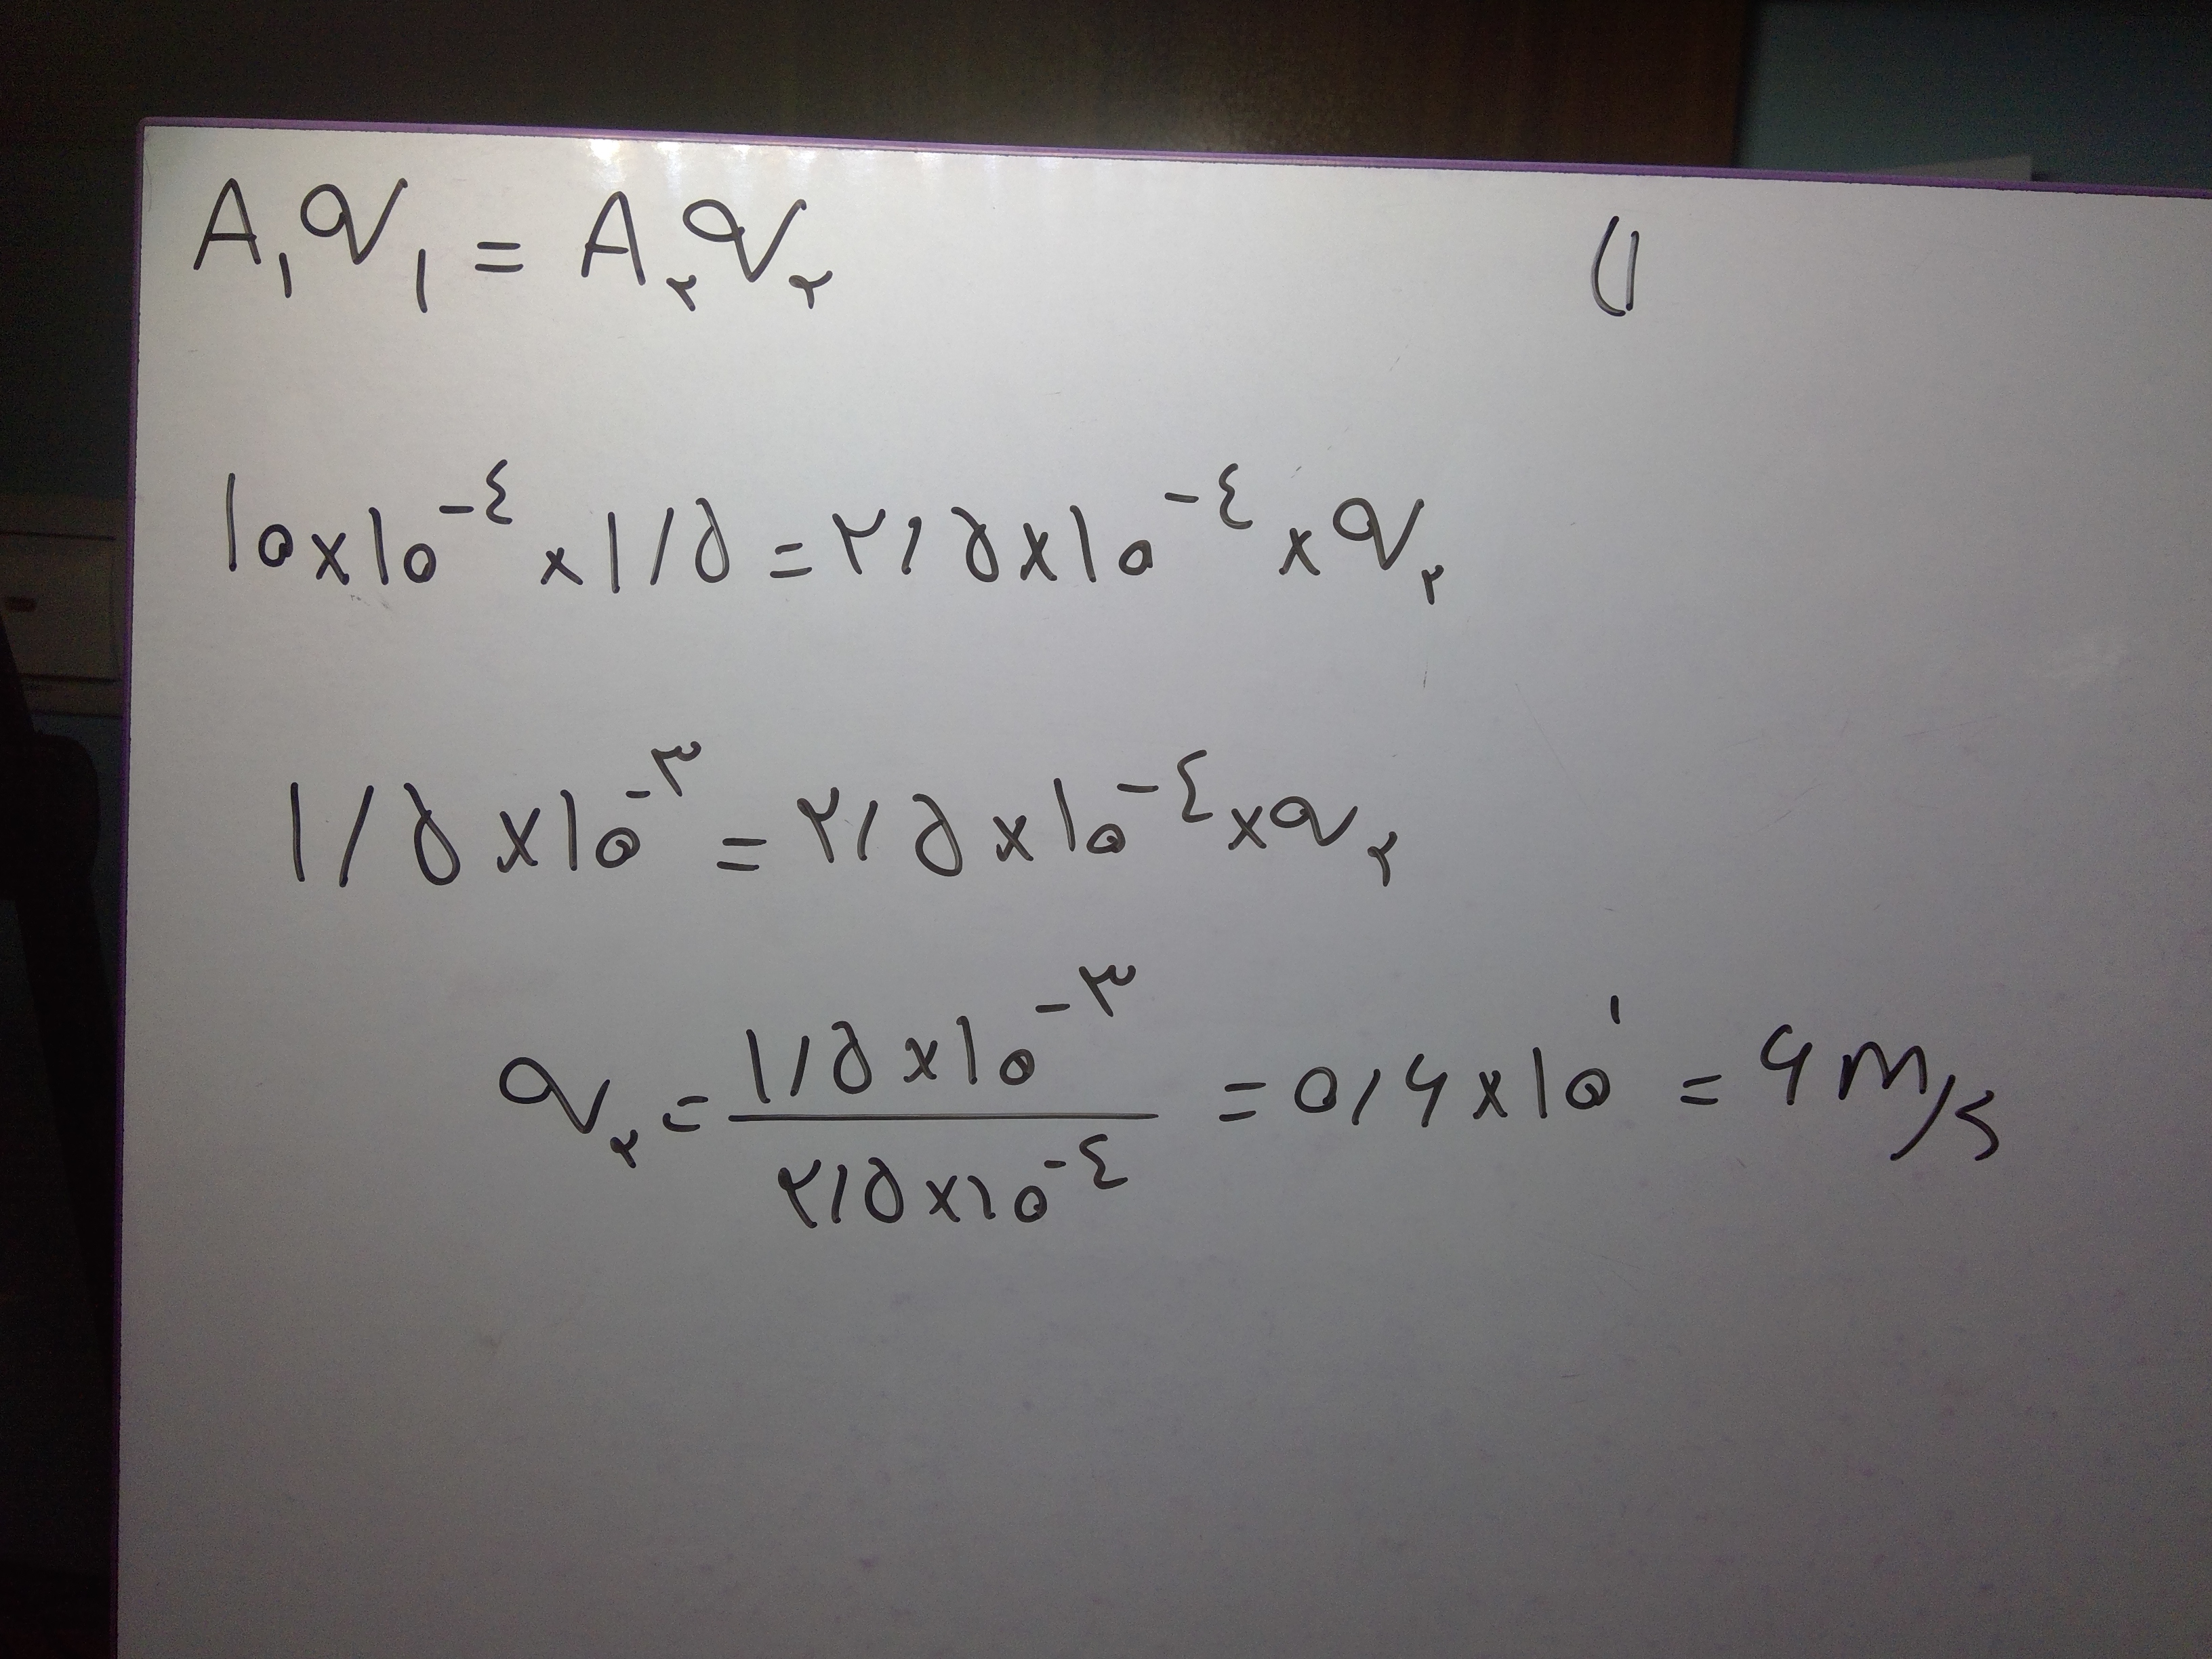 ۱)
A₁v₁ = A₂v₂
۱۰×۱۰^-۴ × ۱/۵ = ۲/۵×۱۰^-۴ × v₂
۱/۵ × ۱۰^-۳ = ۲/۵ × ۱۰^-۴ × v₂
v₂ = (۱/۵ × ۱۰^-۳) / (۲/۵ × ۱۰^-۴) = ۰/۶ × ۱۰^۱ = ۶ m/s